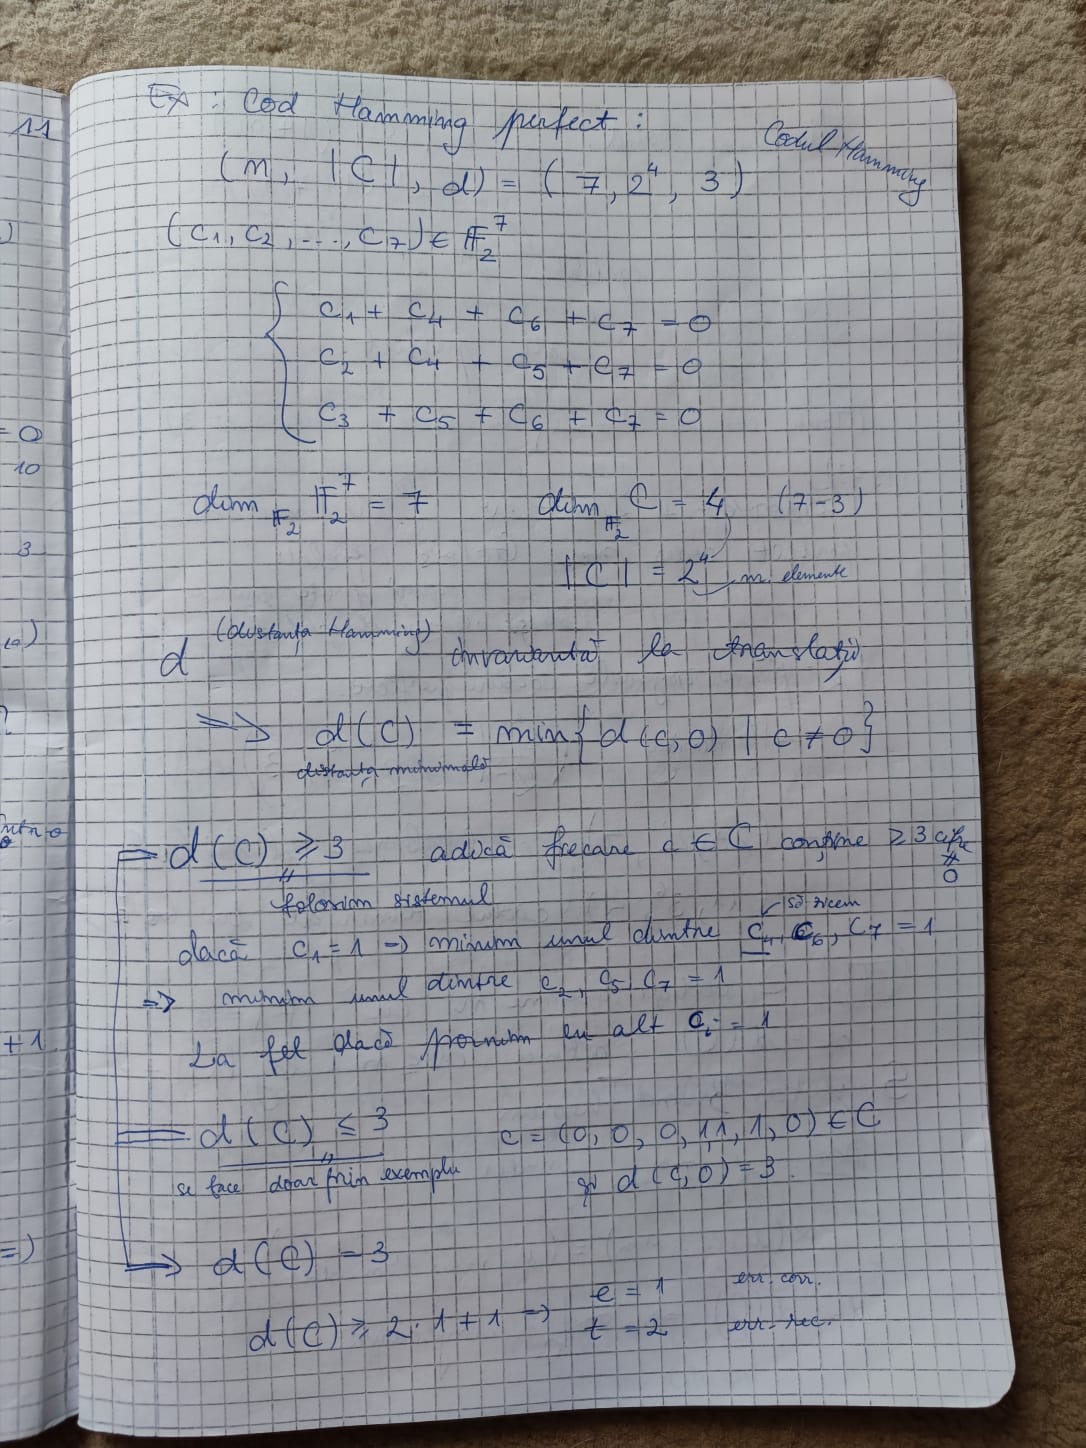 11
Ex: Cod Hamming perfect:
Codul Hamming
(n, |C|, d) = (7, 2⁴, 3)
(c₁, c₂, ..., c₇) ∈ 𝔽₂⁷
c₁ + c₄ + c₆ + c₇ = 0
c₂ + c₄ + c₅ + c₇ = 0
c₃ + c₅ + c₆ + c₇ = 0
= 0
10
dim_𝔽₂ 𝔽₂⁷ = 7 dim_𝔽₂ C = 4 (7-3)
3
|C| = 2⁴ elemente
(distanța Hamming)
d invariantă la translații
=> d(C) = min{d(c,0) | c ≠ 0}
distanța minimală
d(C) ≥ 3 adică fiecare c ∈ C conține ≥ 3 cifre ≠ 0
folosim sistemul
să zicem
dacă c₁ = 1 → minim unul dintre c₄, c₆, c₇ = 1
=> minim unul dintre c₂, c₅, c₇ = 1
+ 1
La fel dacă pornim cu alt cᵢ = 1
d(C) ≤ 3 c = (0, 0, 0, 1, 1, 1, 0) ∈ C
se face doar prin exemplu și d(c,0) = 3.
=)
d(C) = 3
e = 1 err. cor.
d(C) ≥ 2·1 + 1 => t = 2 err. rec.